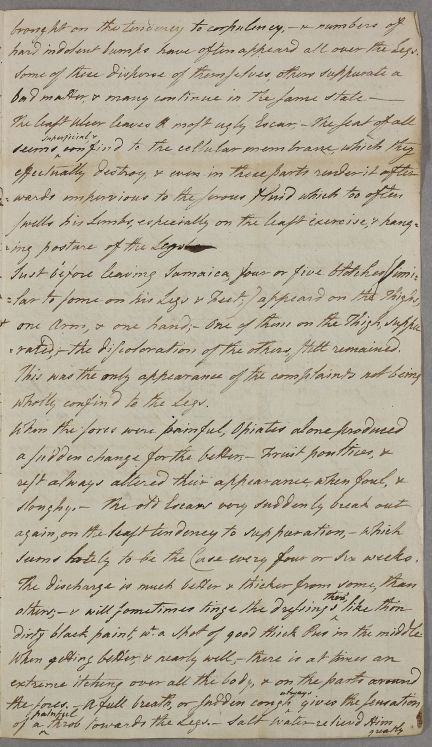 brought on the tendency to corpulency, - & numbers of
hard indolent bumps have often appeared all over the Legs.
Some of these disperse of themselves, others suppurate a
bad matter & many continue in the same state -
The least Ulcer leaves a most ugly Escar, - The seat of all
seems superficial & confind to the cellular membrane, which they
effectually destroy, & even in these parts render it after-
wards impervious to the serous fluid which too often
swells his Limbs, especially on the least exercise, & hang-
ing posture of the Legs
Just before leaving Jamaica, four or five blotches (simi-
-lar to some on his Legs & Feet,) appeared on the Thighs,
one Arm, & one hand; - One of those on the Thigh, suppu
-rated; - the discoloration of the others, still remained.
This was the only appearance of the complaints not being
wholly confind to the Legs.
When the sores were painful, Opiates alone produced
a sudden change for the better, - Fruit poultices, &
rest always altered their appearance when foul, &
sloughy. - The old Escars very suddenly break out
again, on the least tendency to suppuration, - which
seems lately to be the Case every four or six weeks.
The discharge is much better & thicker from some, than
others, - & will sometimes tinge the dressings thro', like thin
dirty black paint, wt. a spot of good thick Pus in the middle
When getting better, & nearly well, - there is at times an
extreme itching over all the body, & on the parts around
the sores. - A full breath, or sudden cough always gives the sensation
of a painful throb towards the Legs. - Salt water relievd Him
greatly